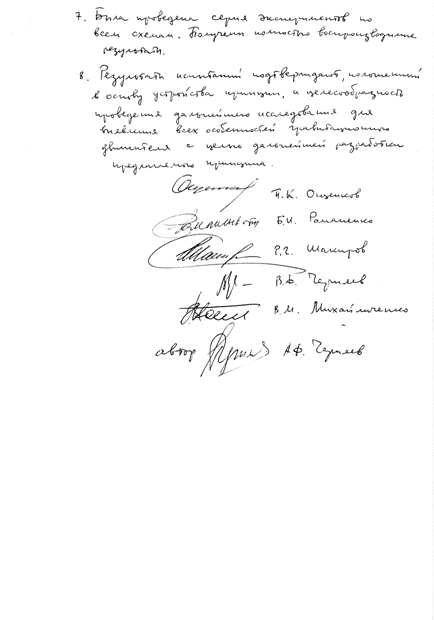 7. Была проведена серия экспериментов по
всем схемам. Получены полностью воспроизводимые
результаты.
8. Результаты испытаний подтверждают, положенный
в основу устройства принцип, и целесообразность
проведения дальнейшего исследования для
выявления всех особенностей гравитационного
двигателя с целью дальнейшей разработки
предлагаемого принципа.
П.К. Ощепков
Б.И. Романенко
Р.Г. Шакиров
В.Ф. Черняев
В.М. Михайличенко
автор А.Ф. Черняев